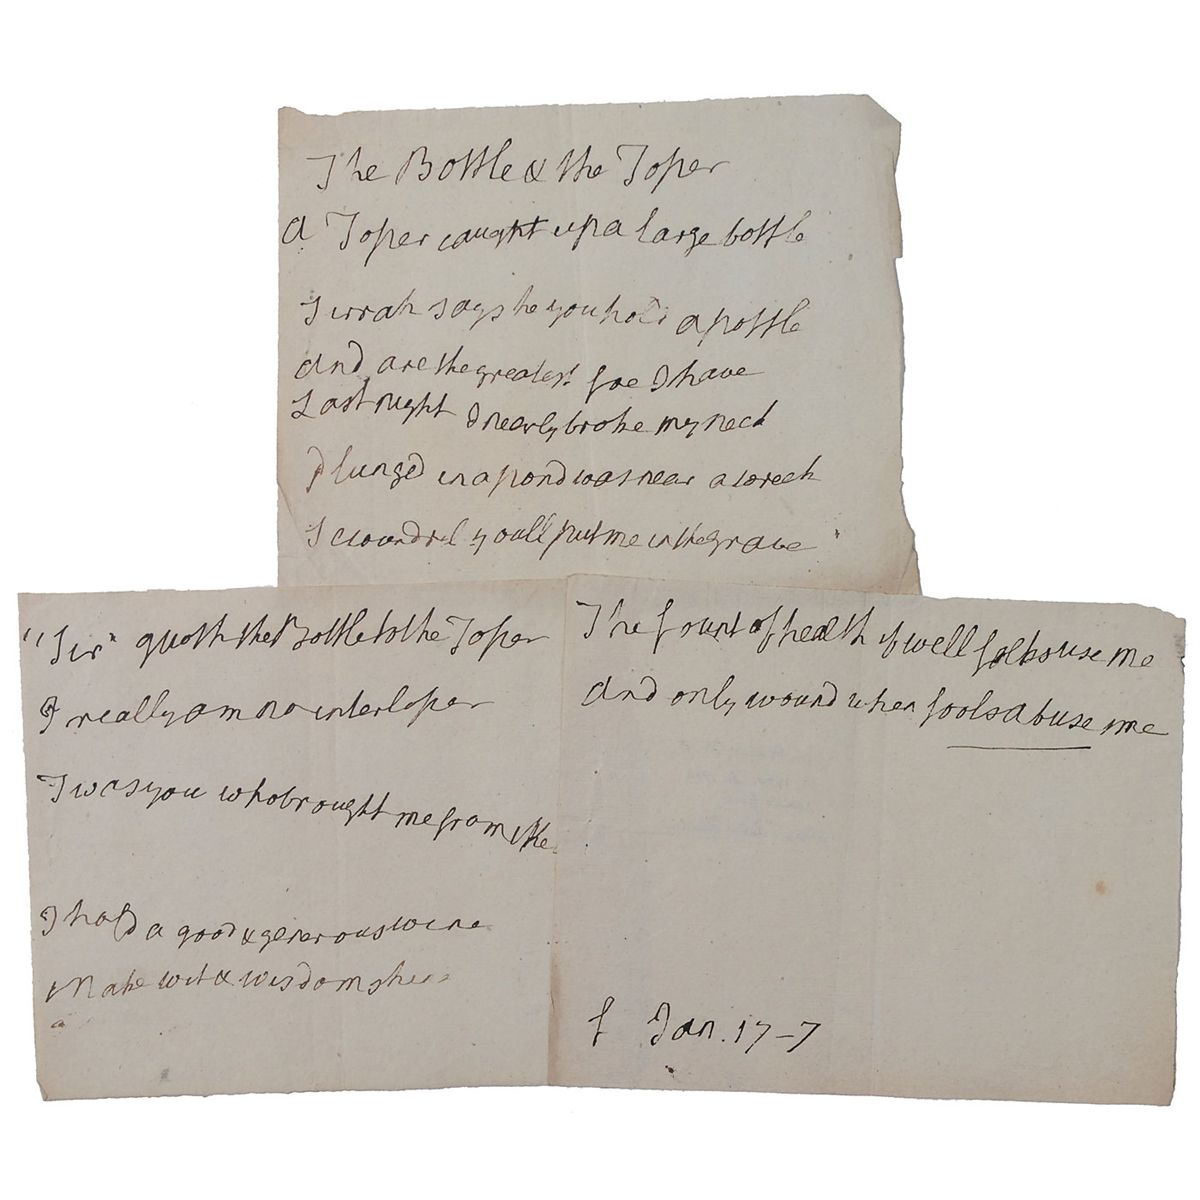 The Bottle & the Toper
A Toper caught up a large bottle
Sirrah says he you hold a pottle
And are the greatest foe I have
Last night I nearly broke my neck
Plunged in a pond was near a wreck
Scoundrel youll put me in the grave "
"Sir" quoth the Bottle to the Toper
I really am no interloper
Twas you who brought me from the
I hold a good & generous wine
Make wit & wisdom shine
a
The fount of health if well folks use me
And only wound when fools abuse me
f Jan. 17-7